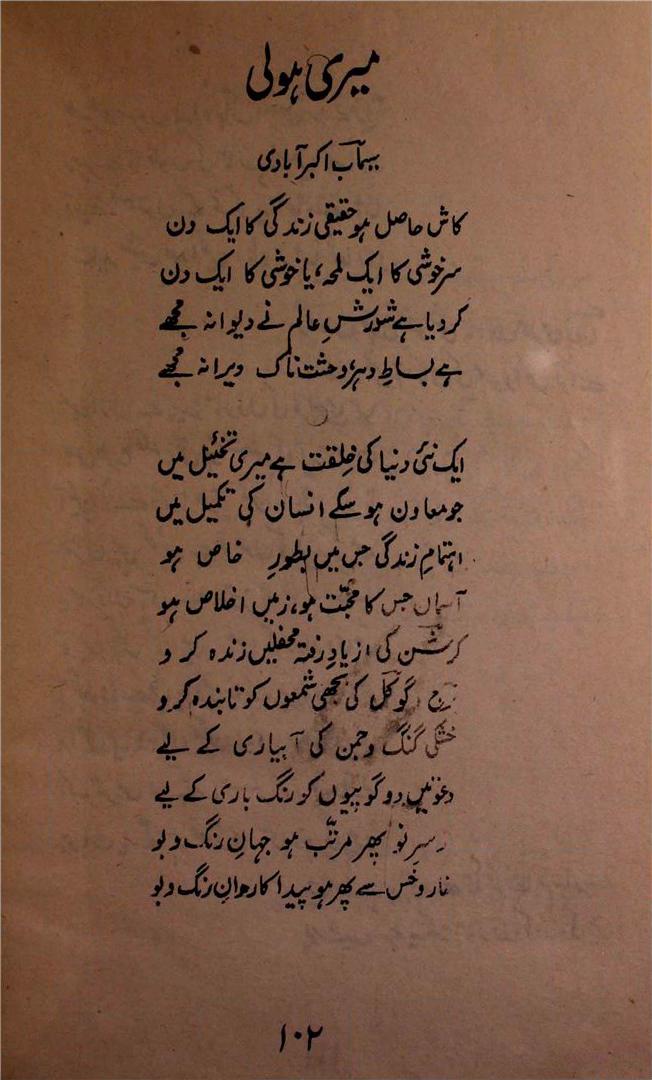 میری ہولی
سیماب اکبر آبادی
کاش حاصل ہو حقیقی زندگی کا ایک دن
سرخوشی کا ایک لمحہ، یا خوشی کا ایک دن
کر دیا ہے شورشِ عالم نے دیوانہ مجھے
ہے بساطِ دہر وحشت ناک ویرانہ مجھے
ایک نئی دنیا کی خلقت ہے میری تخئیل میں
جو معاون ہو سکے انسان کی تکمیل میں
اہتمامِ زندگی جس میں بطورِ خاص ہو
آسماں جس کا محبّت ہو، زمیں اخلاص ہو
کرشن کی از یادِ رفتہ محفلیں زندہ کرو
گوکل کی بجھی شمعوں کو تابندہ کرو
خشکی گنگ و جمن کی آبیاری کے لیے
دعوتیں دو گوپیوں کو رنگ باری کے لیے
سرِ نو پھر مرتّب ہو جہانِ رنگ و بو
خار و خس سے پھر ہو پیدا کاروانِ رنگ و بو
۱۰۲